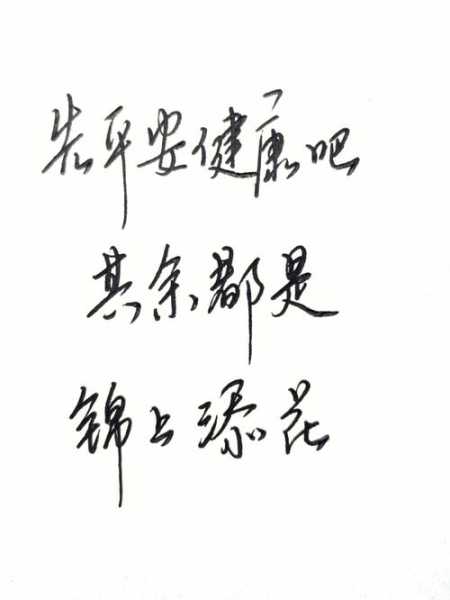 先平安健康吧
其余都是
锦上添花